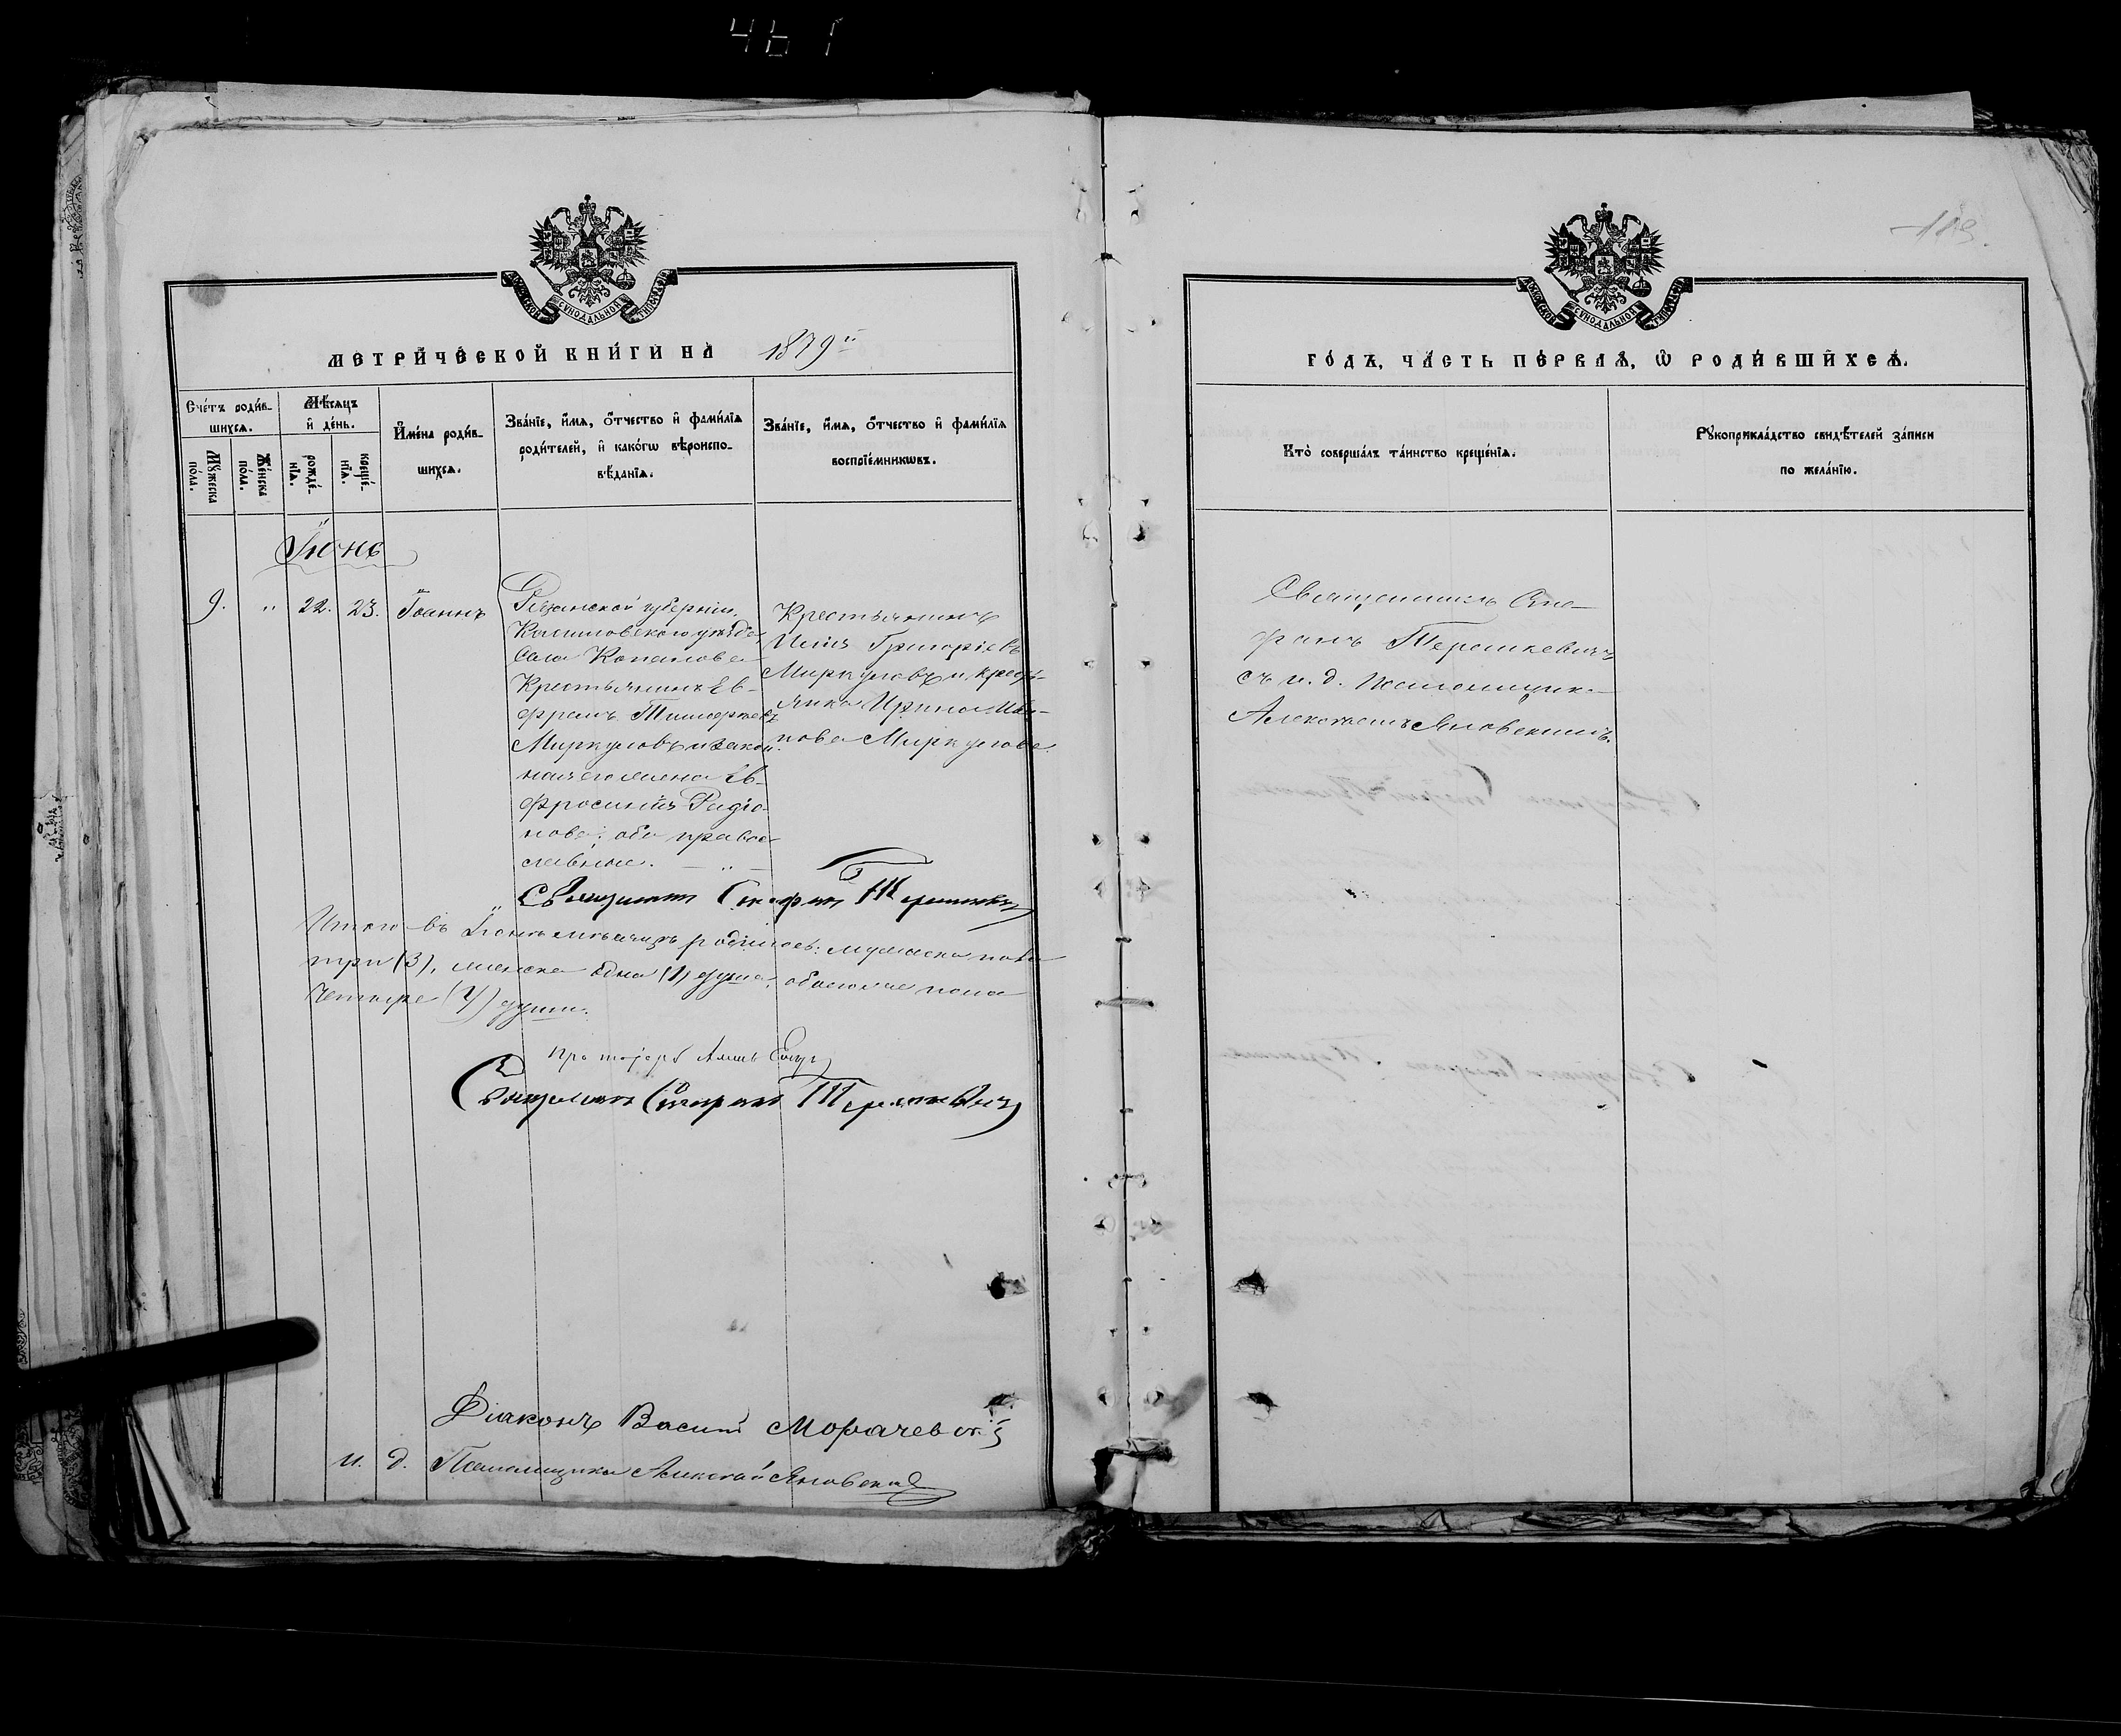 461
119.
МЕТРИЧЕСКОЙ КНИГИ НА 1879й
ГОДЪ, ЧАСТЬ ПЕРВАЯ, Ѡ РОДИВШИХСЯ.
Счетъ родив-
шихся.
Мужеска
пола.
Женска
пола.
Мѣсяцъ
и день.
рожде-
нїя.
креще-
нїя.
Имена родив-
шихся.
Званїе, имя, отчество и фамилїя
родителей, и какогω вѣроиспо-
вѣданїя.
Званїе, имя, отчество и фамилїя
воспрїемникωвъ.
Кто совершалъ таинство крещенїя.
Рукоприкладство свидѣтелей записи
по желанїю.
Іюнь
9. " 22. 23. Іоаннъ
Рязанской губерніи,
Касимовскаго уѣзда,
Села Копанова
Крестьянинъ Ев-
фрамъ Тимофеевъ
Миркуловъ и закон-
ная его жена Ев-
фросинія Родіо-
нова; оба право-
славные. — " —
Крестьянинъ
Григоріевъ
Миркуловъ и крест-
янка Ирина Ива-
нова Миркулова.
Священникъ Сте-
фанъ Терешкевичъ
съ и. д. Псаломщика
Алексѣемъ Яновскимъ.
Священникъ Стефан Терешкевич
Итого въ Іюнѣ мѣсяцѣ родилось: мужеска пола
три (3), женска одна (1) душа, обоего пола
четыре (4) души.
Протоіерей
Священник Стефан Терешкевич
Діаконъ Васил Морачевскій
и. д. Псаломщика Алексѣй Яновскій